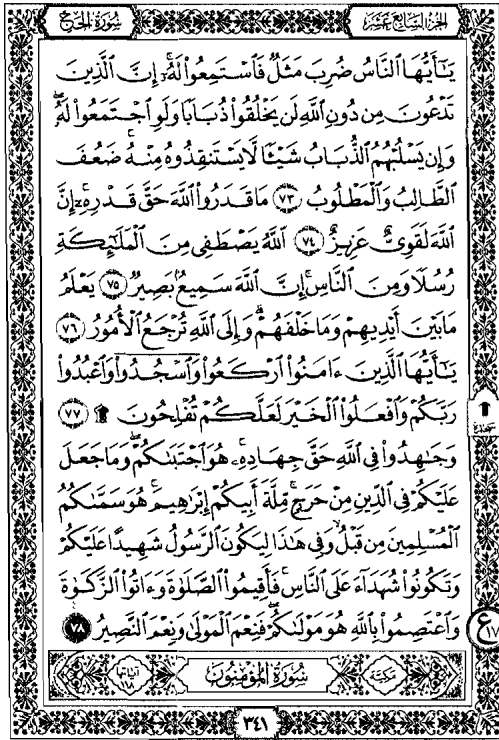 الجزء السابع عشر
سورة الحج
يَٰٓأَيُّهَا ٱلنَّاسُ ضُرِبَ مَثَلٌ فَٱسْتَمِعُوا۟ لَهُۥٓ ۚ إِنَّ ٱلَّذِينَ
تَدْعُونَ مِن دُونِ ٱللَّهِ لَن يَخْلُقُوا۟ ذُبَابًا وَلَوِ ٱجْتَمَعُوا۟ لَهُۥ ۖ
وَإِن يَسْلُبْهُمُ ٱلذُّبَابُ شَيْـًٔا لَّا يَسْتَنقِذُوهُ مِنْهُ ۚ ضَعُفَ
ٱلطَّالِبُ وَٱلْمَطْلُوبُ ٧٣ مَا قَدَرُوا۟ ٱللَّهَ حَقَّ قَدْرِهِۦٓ ۗ إِنَّ
ٱللَّهَ لَقَوِىٌّ عَزِيزٌ ٧٤ ٱللَّهُ يَصْطَفِى مِنَ ٱلْمَلَٰٓئِكَةِ
رُسُلًا وَمِنَ ٱلنَّاسِ ۚ إِنَّ ٱللَّهَ سَمِيعٌۢ بَصِيرٌ ٧٥ يَعْلَمُ
مَا بَيْنَ أَيْدِيهِمْ وَمَا خَلْفَهُمْ ۗ وَإِلَى ٱللَّهِ تُرْجَعُ ٱلْأُمُورُ ٧٦
يَٰٓأَيُّهَا ٱلَّذِينَ ءَامَنُوا۟ ٱرْكَعُوا۟ وَٱسْجُدُوا۟ وَٱعْبُدُوا۟
رَبَّكُمْ وَٱفْعَلُوا۟ ٱلْخَيْرَ لَعَلَّكُمْ تُفْلِحُونَ ۩ ٧٧
سجدة
وَجَٰهِدُوا۟ فِى ٱللَّهِ حَقَّ جِهَادِهِۦ ۚ هُوَ ٱجْتَبَىٰكُمْ وَمَا جَعَلَ
عَلَيْكُمْ فِى ٱلدِّينِ مِنْ حَرَجٍ ۚ مِّلَّةَ أَبِيكُمْ إِبْرَٰهِيمَ ۚ هُوَ سَمَّىٰكُمُ
ٱلْمُسْلِمِينَ مِن قَبْلُ وَفِى هَٰذَا لِيَكُونَ ٱلرَّسُولُ شَهِيدًا عَلَيْكُمْ
وَتَكُونُوا۟ شُهَدَآءَ عَلَى ٱلنَّاسِ ۚ فَأَقِيمُوا۟ ٱلصَّلَوٰةَ وَءَاتُوا۟ ٱلزَّكَوٰةَ
وَٱعْتَصِمُوا۟ بِٱللَّهِ هُوَ مَوْلَىٰكُمْ ۖ فَنِعْمَ ٱلْمَوْلَىٰ وَنِعْمَ ٱلنَّصِيرُ ٧٨
ع ١٧
مكية
سورة المؤمنون
آياتها ١١٨
٣٤١